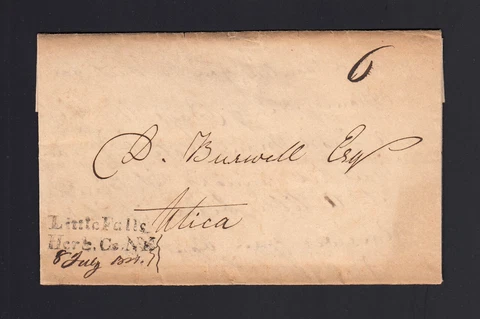 6
D. Burwell Esq
Utica
Little Falls
Herk. Co. N.Y.
8 July